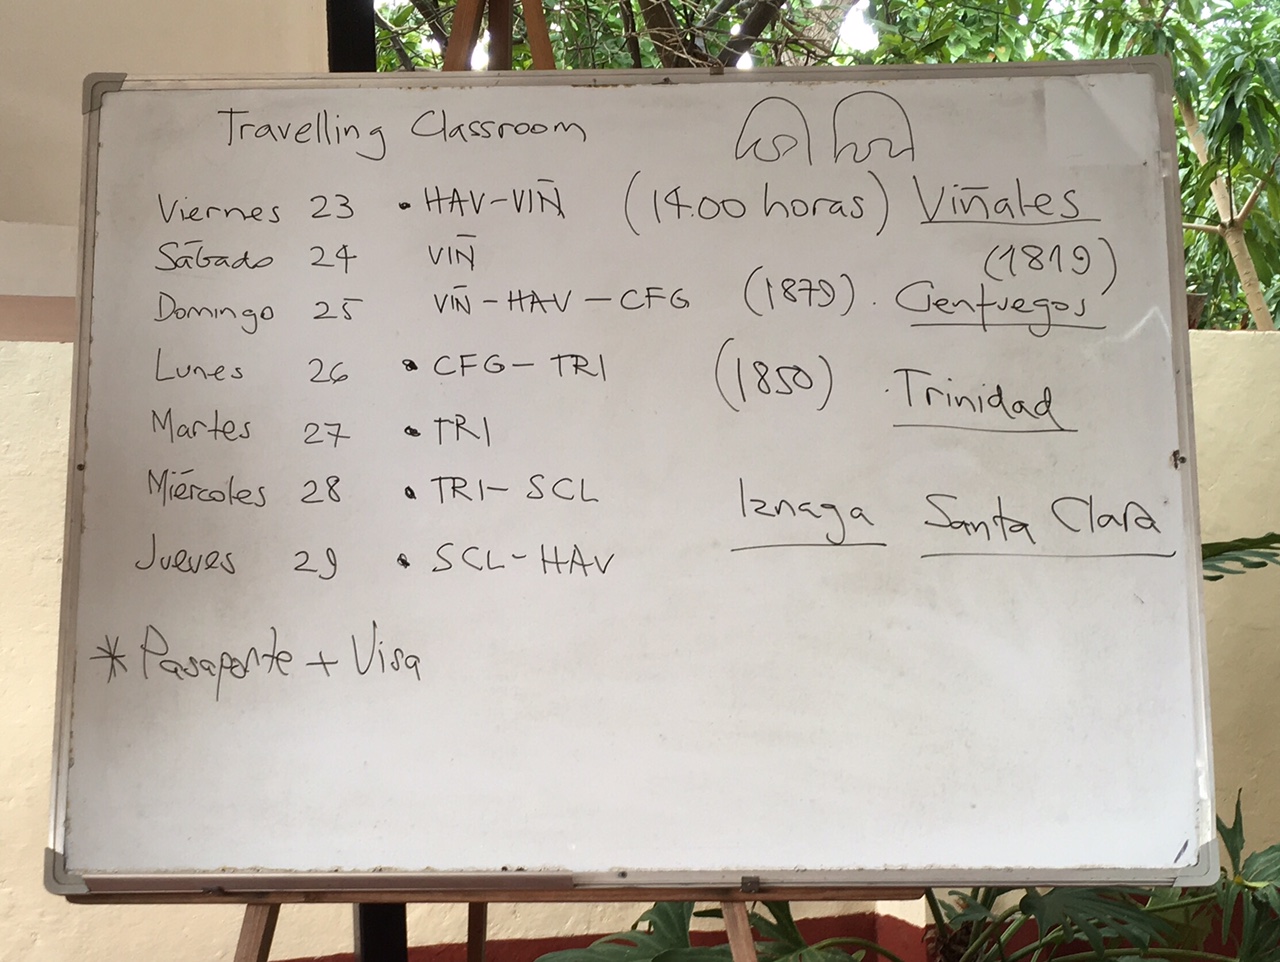 Travelling Classroom
Viernes 23 • HAV-VIÑ (14.00 horas) Viñales
Sábado 24 VIÑ (1819)
Domingo 25 VIÑ - HAV - CFG (1879). Cienfuegos
Lunes 26 • CFG - TRI (1850) Trinidad
Martes 27 • TRI
Miércoles 28 • TRI - SCL Iznaga Santa Clara
Jueves 29 • SCL - HAV
* Pasaporte + Visa